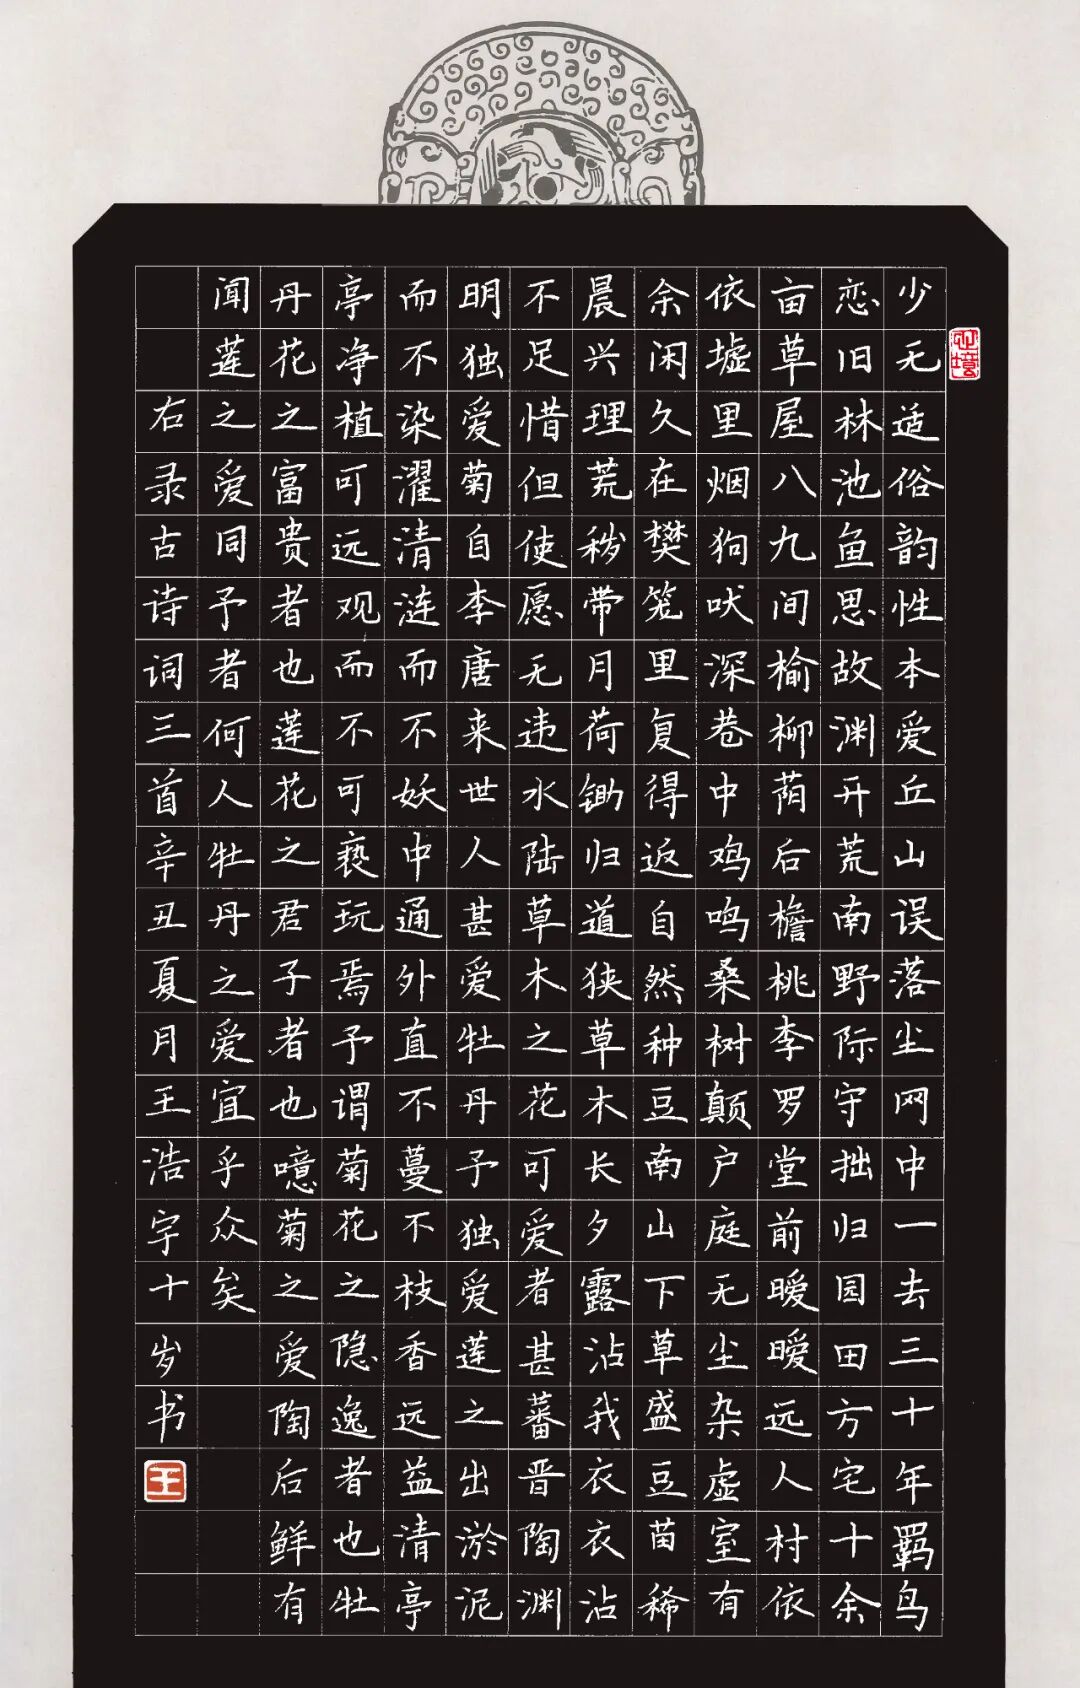 心境
少无适俗韵性本爱丘山误落尘网中一去三十年羁鸟
恋旧林池鱼思故渊开荒南野际守拙归园田方宅十余
亩草屋八九间榆柳荫后檐桃李罗堂前暧暧远人村依
依墟里烟狗吠深巷中鸡鸣桑树颠户庭无尘杂虚室有
余闲久在樊笼里复得返自然种豆南山下草盛豆苗稀
晨兴理荒秽带月荷锄归道狭草木长夕露沾我衣衣沾
不足惜但使愿无违水陆草木之花可爱者甚蕃晋陶渊
明独爱菊自李唐来世人甚爱牡丹予独爱莲之出淤泥
而不染濯清涟而不妖中通外直不蔓不枝香远益清亭
亭净植可远观而不可亵玩焉予谓菊花之隐逸者也牡
丹花之富贵者也莲花之君子者也噫菊之爱陶后鲜有
闻莲之爱同予者何人牡丹之爱宜乎众矣
右录古诗词三首辛丑夏月王浩宇十岁书
王